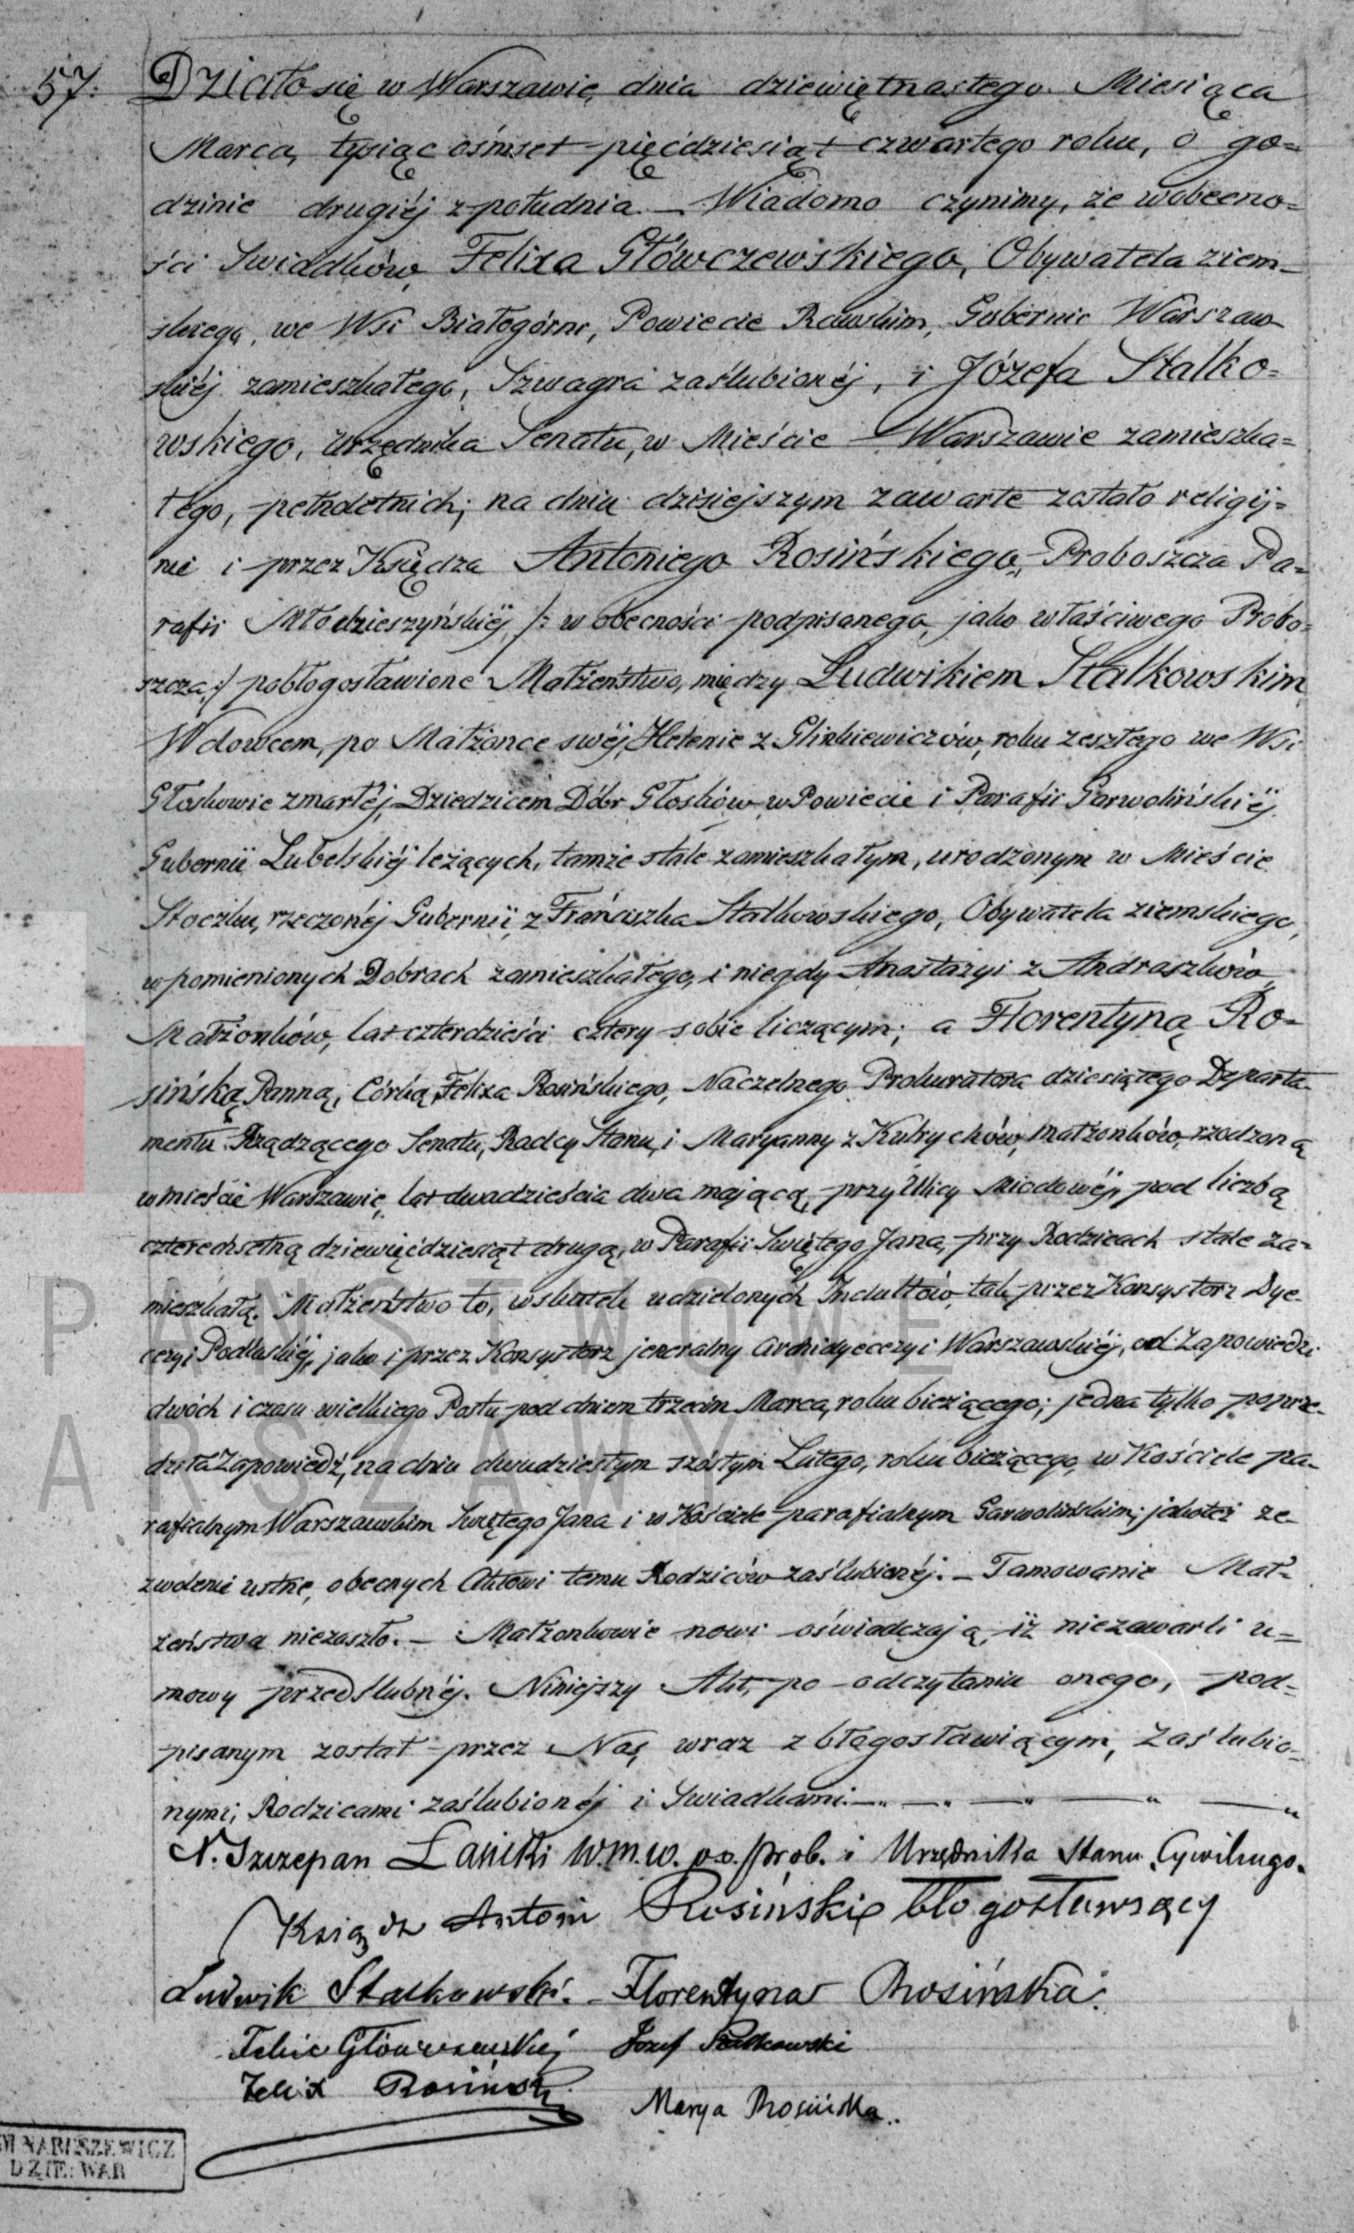 57. Działo się w Warszawie, dnia dziewiętnastego Miesiąca
Marca, tysiąc ośmset pięćdziesiąt czwartego roku, o go=
dzinie drugiéj z południa. — Wiadomo czynimy, że wobecno=
ści Swiadków, Felixa Główczewskiego, Obywatela ziem=
skiego, we Wsi Białegórne, Powiecie Rawskim, Gubernie Warszaw=
skiéj zamieszkałego, Szwagra zaślubionéj, i Józefa Stalko=
wskiego, urzędnika Senatu, w Mieście Warszawie zamieszka=
łego, pełnoletnich; na dniu dzisiejszym zawarte zostało religij=
nie i przez Księdza Antoniego Rosińskiego, Proboszcza Pa=
rafii Młodzieszyńskiéj, /: w obecności podpisanego, jako właściwego Probo=
szcza :/ pobłogosławione Małżeństwo, między Ludwikiem Stalkowskim
Wdowcem, po Małżonce swéj, Helenie z Glinkiewiczów, roku zeszłego we Wsi
Głoskowie zmarłéj, Dziedzicem Dóbr Głosków w Powiecie i Parafii Garwolińskiéj
Gubernii Lubelskiéj leżących, tamże stale zamieszkałym, urodzonym w Mieście
Stoczku, rzeczonéj Gubernii, z Franciszka Stalkowskiego, Obywatela ziemskiego,
w pomienionych Dobrach zamieszkałego, i niegdy Anastazyi z Andraszków
Małżonków, lat czterdzieści cztery sobie liczącym; a Florentyną Ro=
sińską Panną, Córką Felixa Rosińskiego, Naczelnego Prokuratora dziesiątego Departa=
mentu Rządzącego Senatu, Radcy Stanu, i Maryanny z Kubrychów, małżonków, rzodzoną
w mieście Warszawie, lat dwadzieścia dwa mającą, przy Ulicy Miodowéj, pod liczbą
czterechsetną dziewięćdziesiąt drugą, w Parafii Swiętego Jana, przy Rodzicach stale za=
mieszkałą. Małżeństwo to, wskutek udzielonych Indultów, tak przez Konsystorz Dye=
cezyi Podlaskiéj, jako i przez Konsystorz jeneralny Archidyecezyi Warszawskiéj, od Zapowiedzi
dwóch i czasu wielkiego Postu pod dniem trzecim Marca, roku bieżącego; jedna tylko poprze=
dziła Zapowiedź, na dniu dwudziestym szóstym Lutego, roku bieżącego, w Kościele pa=
rafialnym Warszawskim Swiętego Jana i w Kościele parafialnym Garwolińskim; jakoteż ze=
zwolenie ustne, obecnych Aktowi temu Rodziców zaślubionéj. — Tamowanie Mał=
żeństwa niezaszło. — Małżonkowie nowi oświadczają, iż niezawarli u=
mowy przedślubnéj. Niniejszy Akt, po odczytaniu onego, pod=
pisanym został przez Nas, wraz z błogosławiącym, Zaślubio=
nymi, Rodzicami zaślubionéj i Swiadkami.
X. Szczepan Łasicki W.M.W. p.o. Prob. i Urzędnika Stanu Cywilnego.
Ksiądz Antoni Rosiński błogosławiący
Ludwik Stalkowski. Florentyna Rosińska.
Felix Główczewski Józef Stalkowski
Felix Rosiński
Marya Rosińska.
PAŃSTWOWE
ARSZAWY
M NARUSZEWICZ
DZIE: WAR